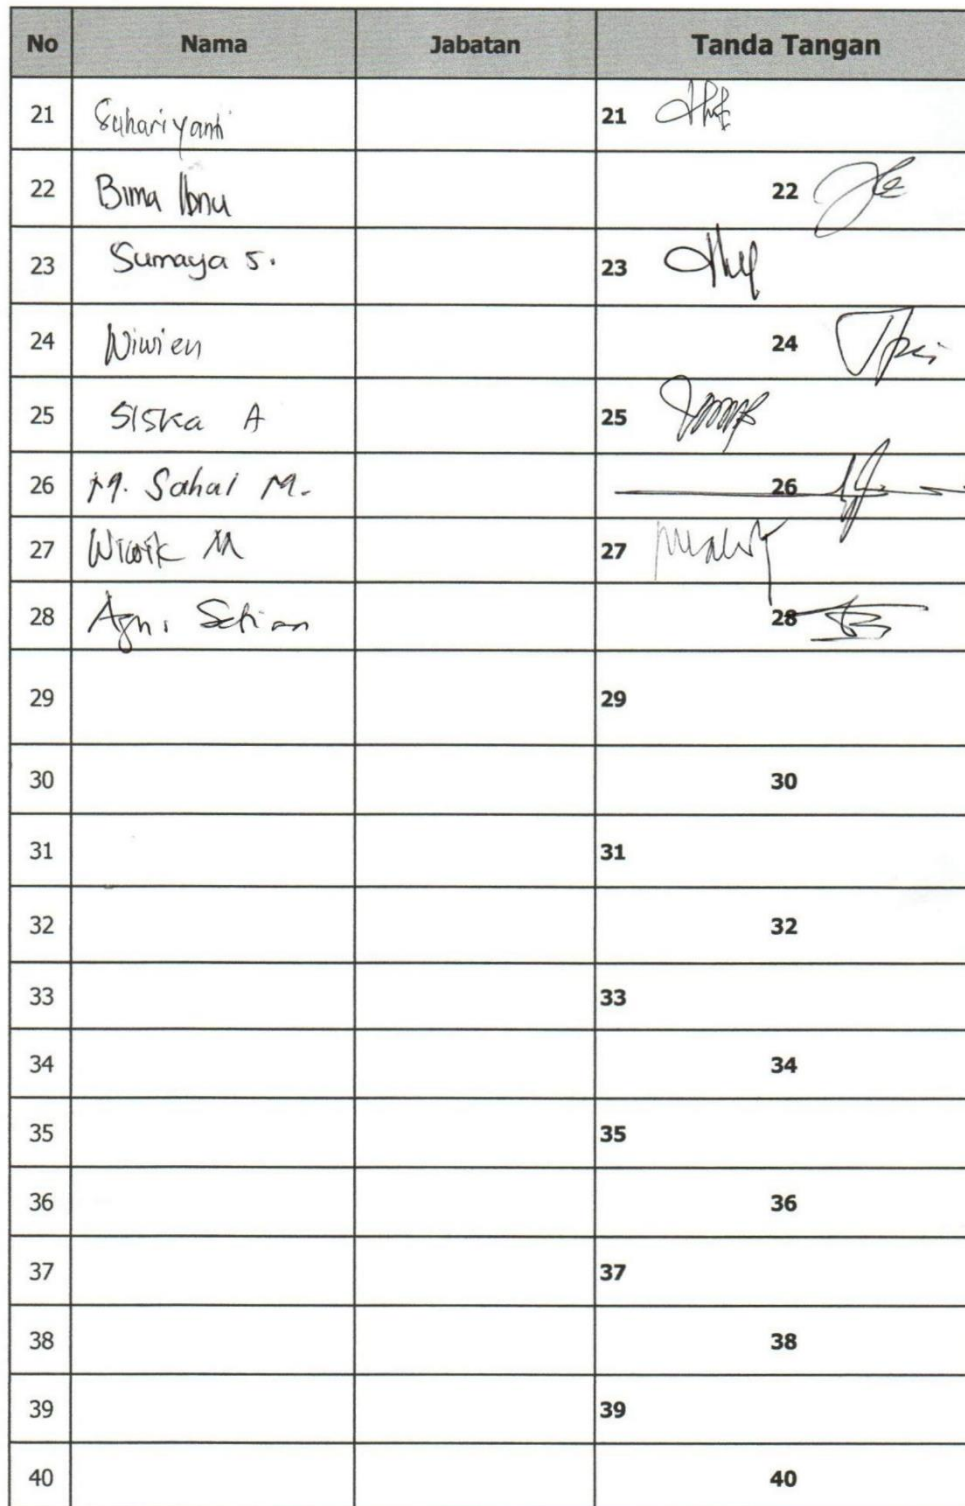 No Nama Jabatan Tanda Tangan
21 Suhariyanti 21
22 Bima Ibnu 22
23 Sumaya S. 23
24 Wiwien 24
25 Siska A 25
26 M. Sahal M. 26
27 Wiwik M 27
28 28
29 29
30 30
31 31
32 32
33 33
34 34
35 35
36 36
37 37
38 38
39 39
40 40